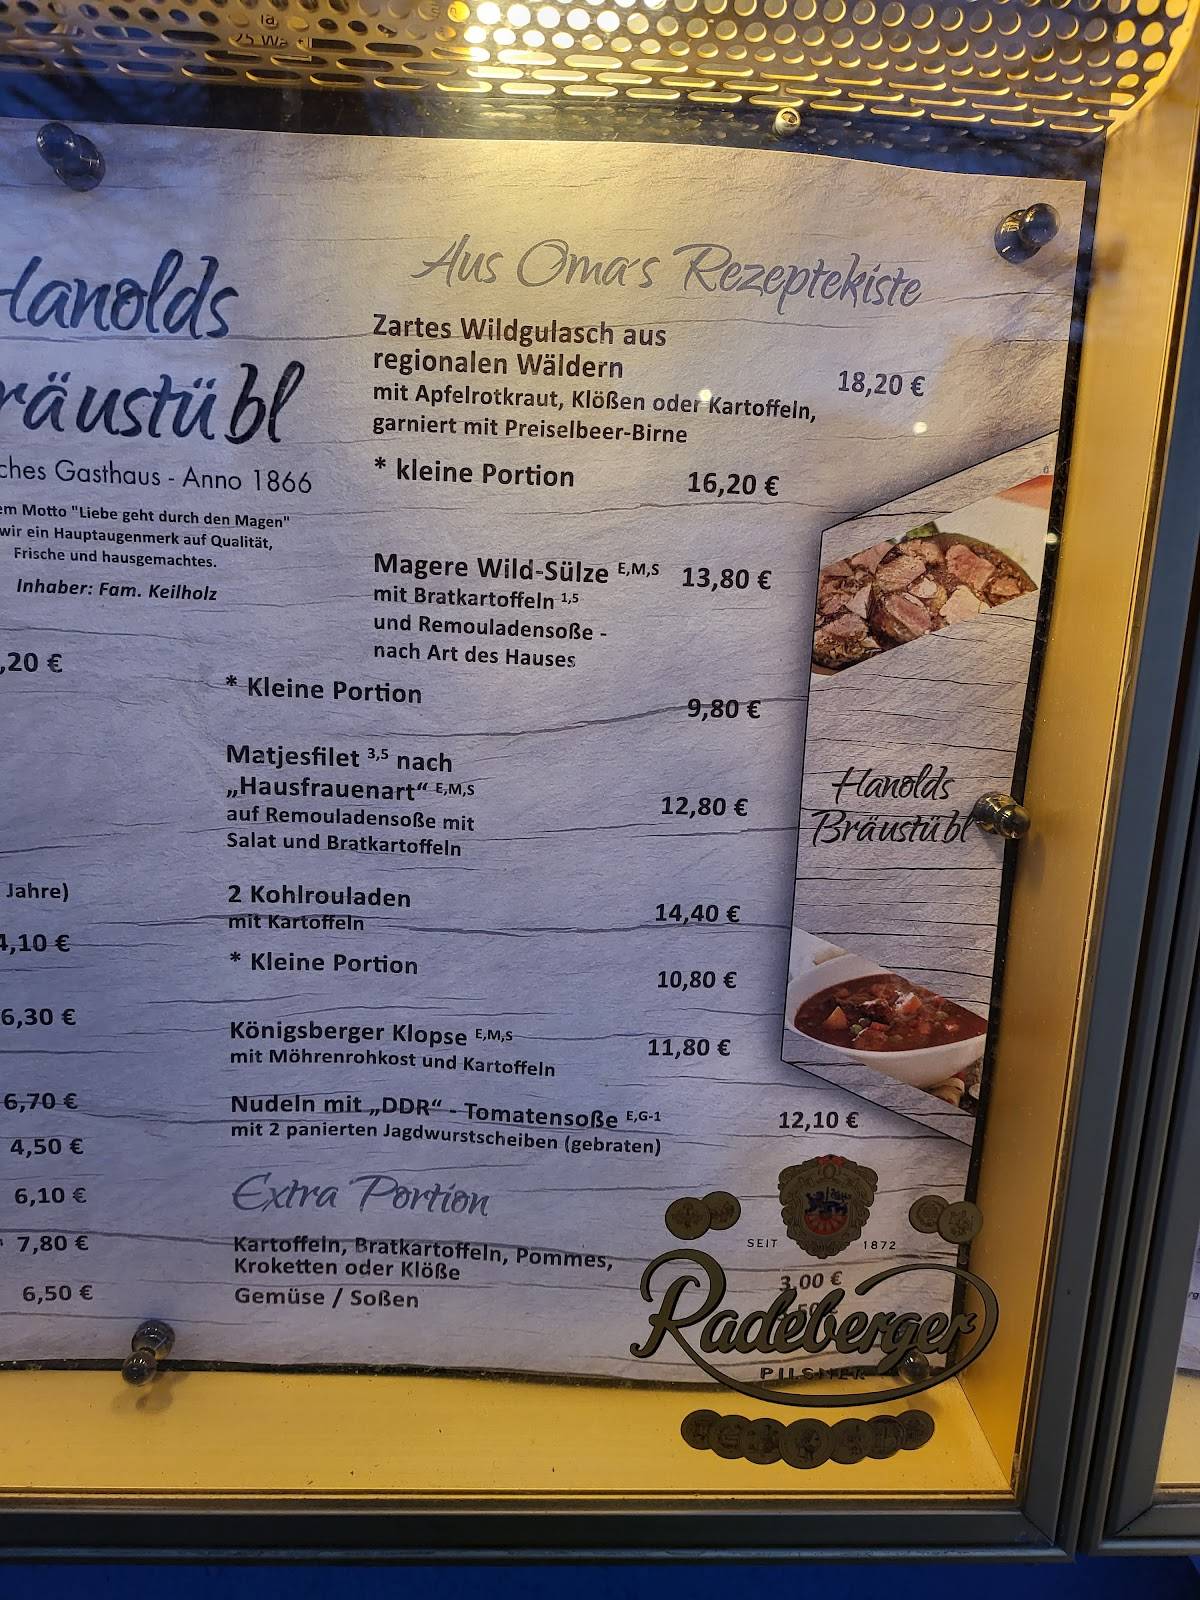 Hanolds
Bräustübl
Gasthaus - Anno 1866
Motto "Liebe geht durch den Magen"
wir ein Hauptaugenmerk auf Qualität,
Frische und hausgemachtes.
Inhaber: Fam. Keilholz
,20 €
Jahre)
4,10 €
6,30 €
6,70 €
4,50 €
6,10 €
7,80 €
6,50 €
Aus Oma's Rezeptekiste
Zartes Wildgulasch aus
regionalen Wäldern
mit Apfelrotkraut, Klößen oder Kartoffeln, 18,20 €
garniert mit Preiselbeer-Birne
* kleine Portion 16,20 €
Magere Wild-Sülze E,M,S 13,80 €
mit Bratkartoffeln 1,5
und Remouladensoße -
nach Art des Hauses
* Kleine Portion 9,80 €
Matjesfilet 3,5 nach
„Hausfrauenart“ E,M,S 12,80 €
auf Remouladensoße mit
Salat und Bratkartoffeln
2 Kohlrouladen 14,40 €
mit Kartoffeln
* Kleine Portion 10,80 €
Königsberger Klopse E,M,S 11,80 €
mit Möhrenrohkost und Kartoffeln
Nudeln mit „DDR“ - Tomatensoße E,G-1 12,10 €
mit 2 panierten Jagdwurstscheiben (gebraten)
Extra Portion
Kartoffeln, Bratkartoffeln, Pommes,
Kroketten oder Klöße 3,00 €
Gemüse / Soßen
Hanolds
Bräustübl
SEIT 1872
Radeberger
PILSNER